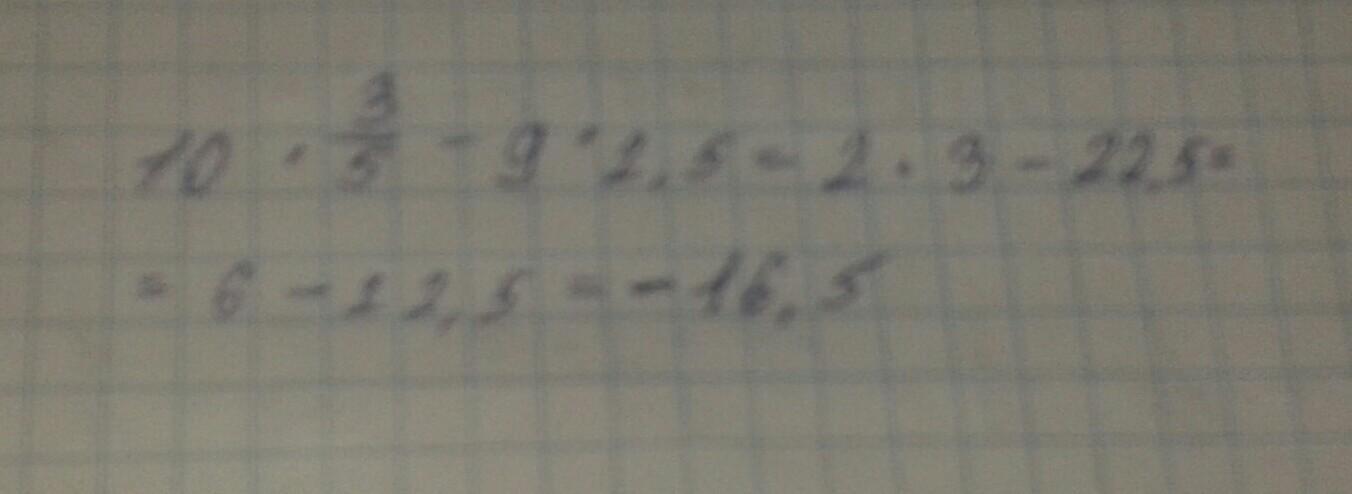 10 · 3/5 - 9 · 2,5 = 2 · 3 - 22,5 =
= 6 - 22,5 = -16,5